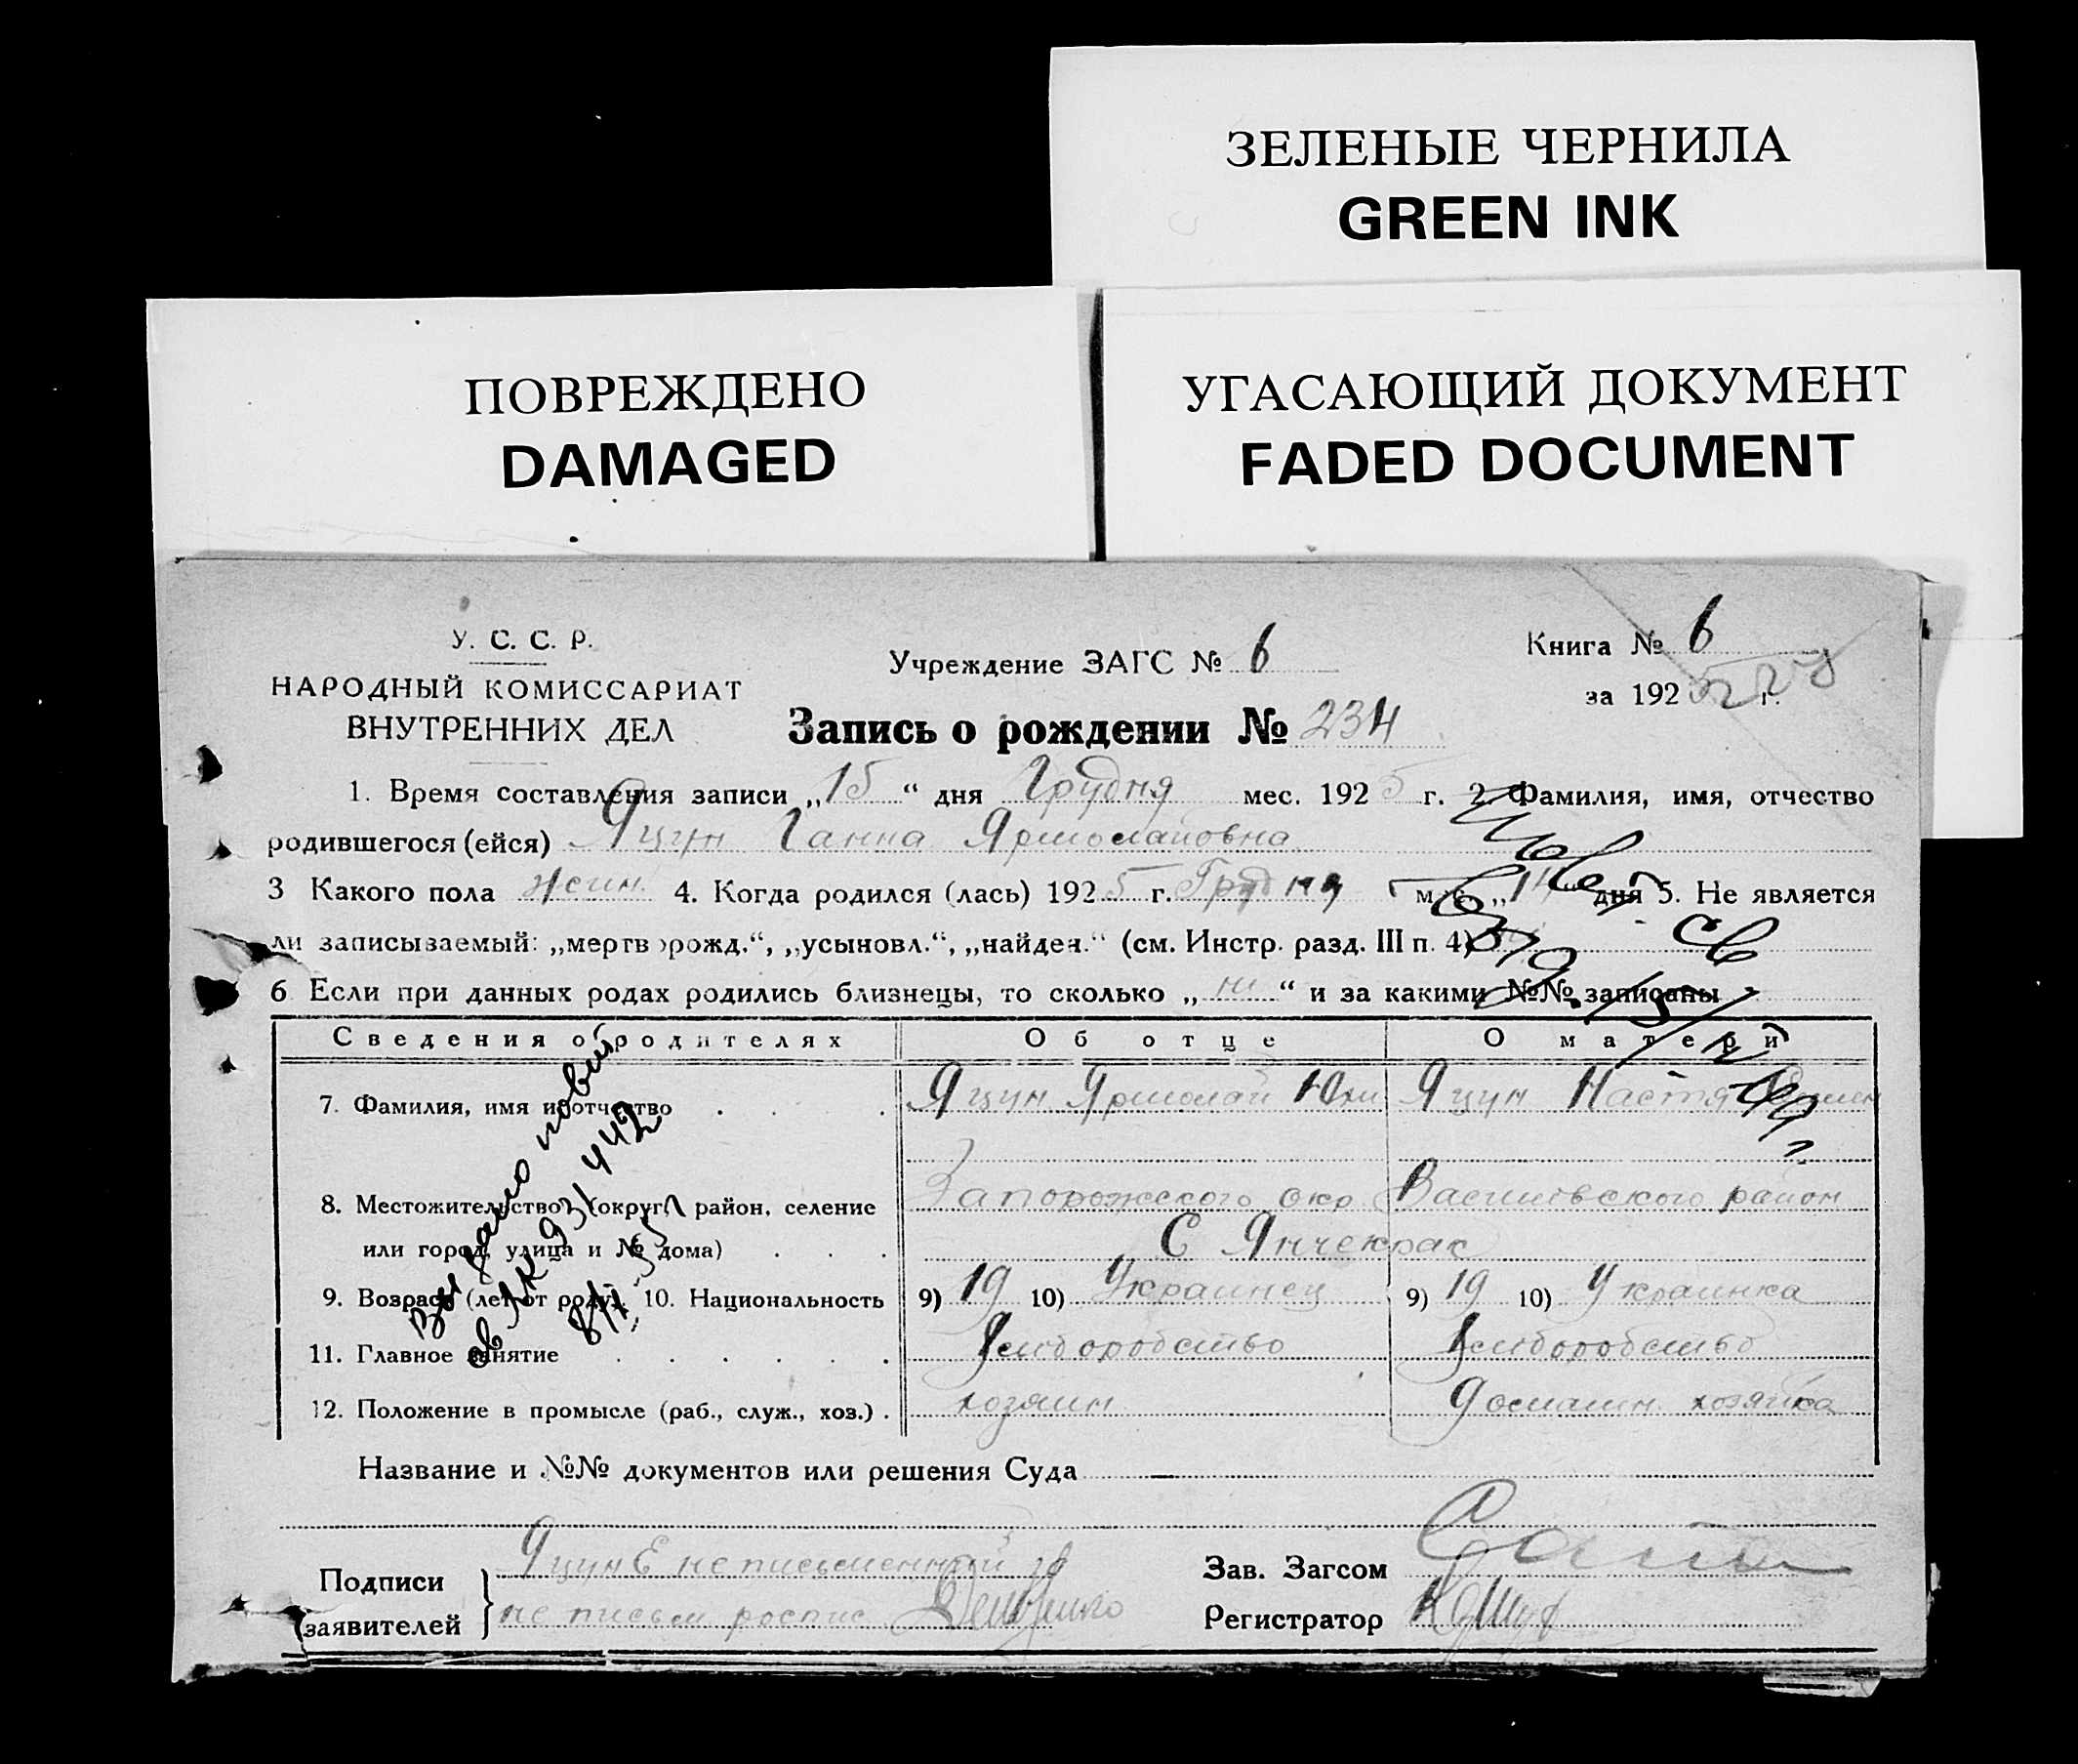 ЗЕЛЕНЫЕ ЧЕРНИЛА
GREEN INK
ПОВРЕЖДЕНО
DAMAGED
УГАСАЮЩИЙ ДОКУМЕНТ
FADED DOCUMENT
У. С. С. Р.
НАРОДНЫЙ КОМИССАРИАТ
ВНУТРЕННИХ ДЕЛ
Учреждение ЗАГС № 6
Книга № 6
за 192 г.
Запись о рождении № 234
1. Время составления записи „15“ дня Грудня мес. 1925 г. 2. Фамилия, имя, отчество
родившегося (ейся) Яцун Ганна Ярмолаивна
3 Какого пола жин. 4. Когда родился (лась) 1925 г. Грудня м-ц. „14“ дня 5. Не является
ли записываемый: „мертворожд.“, „усыновл.“, „найден.“ (см. Инстр. разд. III п. 4)
6 Если при данных родах родились близнецы, то сколько „ни“ и за какими №№ записаны
Сведения о родителях Об отце О матери
7. Фамилия, имя и отчество Яцун Ярмолай Юхи Яцун Настя
8. Местожительство (округ, район, селение Запорожского окр. Васильевского район
или город, улица и № дома) С Янчекрак
9. Возраст (лет от роду). 10. Национальность 9) 19 10) Украинец 9) 19 10) Украинка
11. Главное занятие
12. Положение в промысле (раб., служ., хоз.) хозяин домашн. хозяйка
Название и №№ документов или решения Суда —
Подписи заявителей
Яцун Е неписьменный
не письм роспис
Зав. Загсом
Регистратор